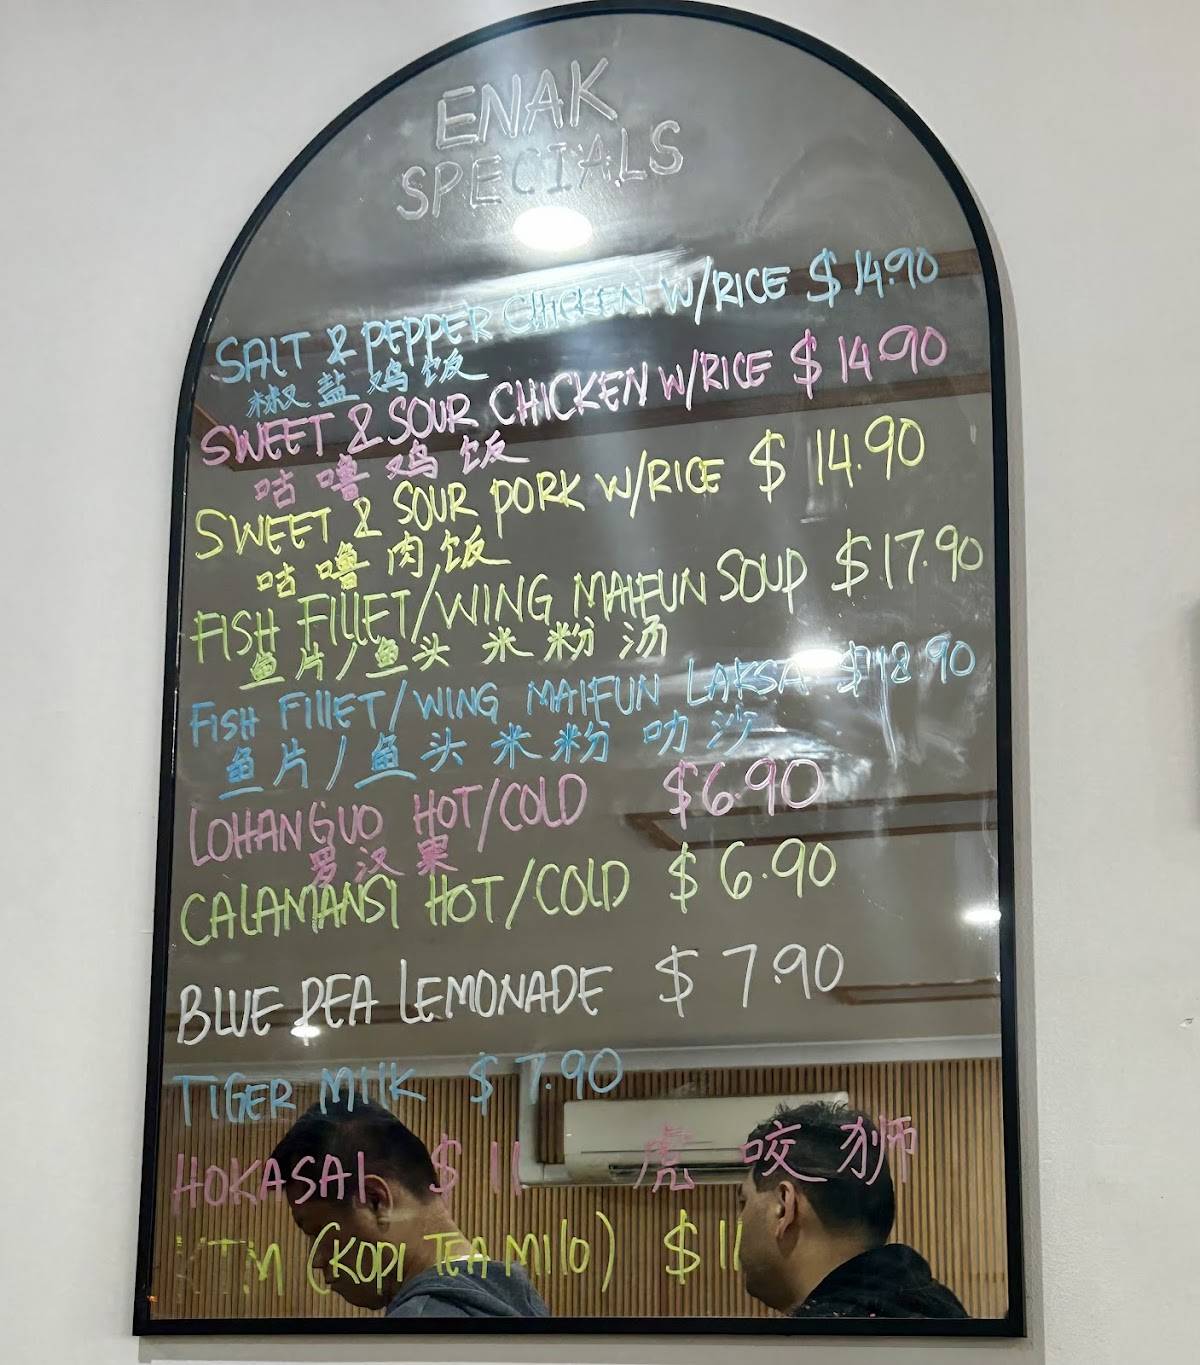 ENAK
SPECIALS
SALT & PEPPER CHICKEN W/RICE $14.90
椒盐鸡饭
SWEET & SOUR CHICKEN W/RICE $14.90
咕噜鸡饭
SWEET & SOUR PORK W/RICE $14.90
咕噜肉饭
FISH FILLET/WING MAIFUN SOUP $17.90
鱼片/鱼头米粉汤
FISH FILLET/WING MAIFUN LAKSA $18.90
鱼片/鱼头米粉叻沙
LOHANGUO HOT/COLD $6.90
罗汉果
CALAMANSI HOT/COLD $6.90
BLUE PEA LEMONADE $7.90
TIGER MILK $7.90
HOKASAI $11 虎咬狮
KTM (KOPI TEA MILO) $11